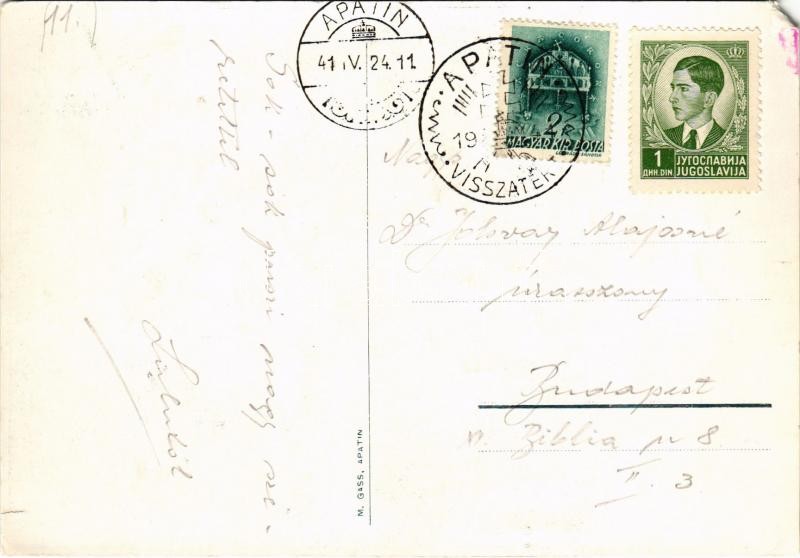 11.
APATIN
41 IV. 24. 11
APATIN
19
VISSZATÉRT
2
MAGYAR KIR. POSTA
1
ДИН. DIN
ЈУГОСЛАВИЈА
JUGOSLAVIJA
Sok - sok puszi nagy sze-
retettel
Dr Jolsvay Alajosné
úrasszony
Budapest
Biblia u 8.
II. 3
M. GÁSS, APATIN